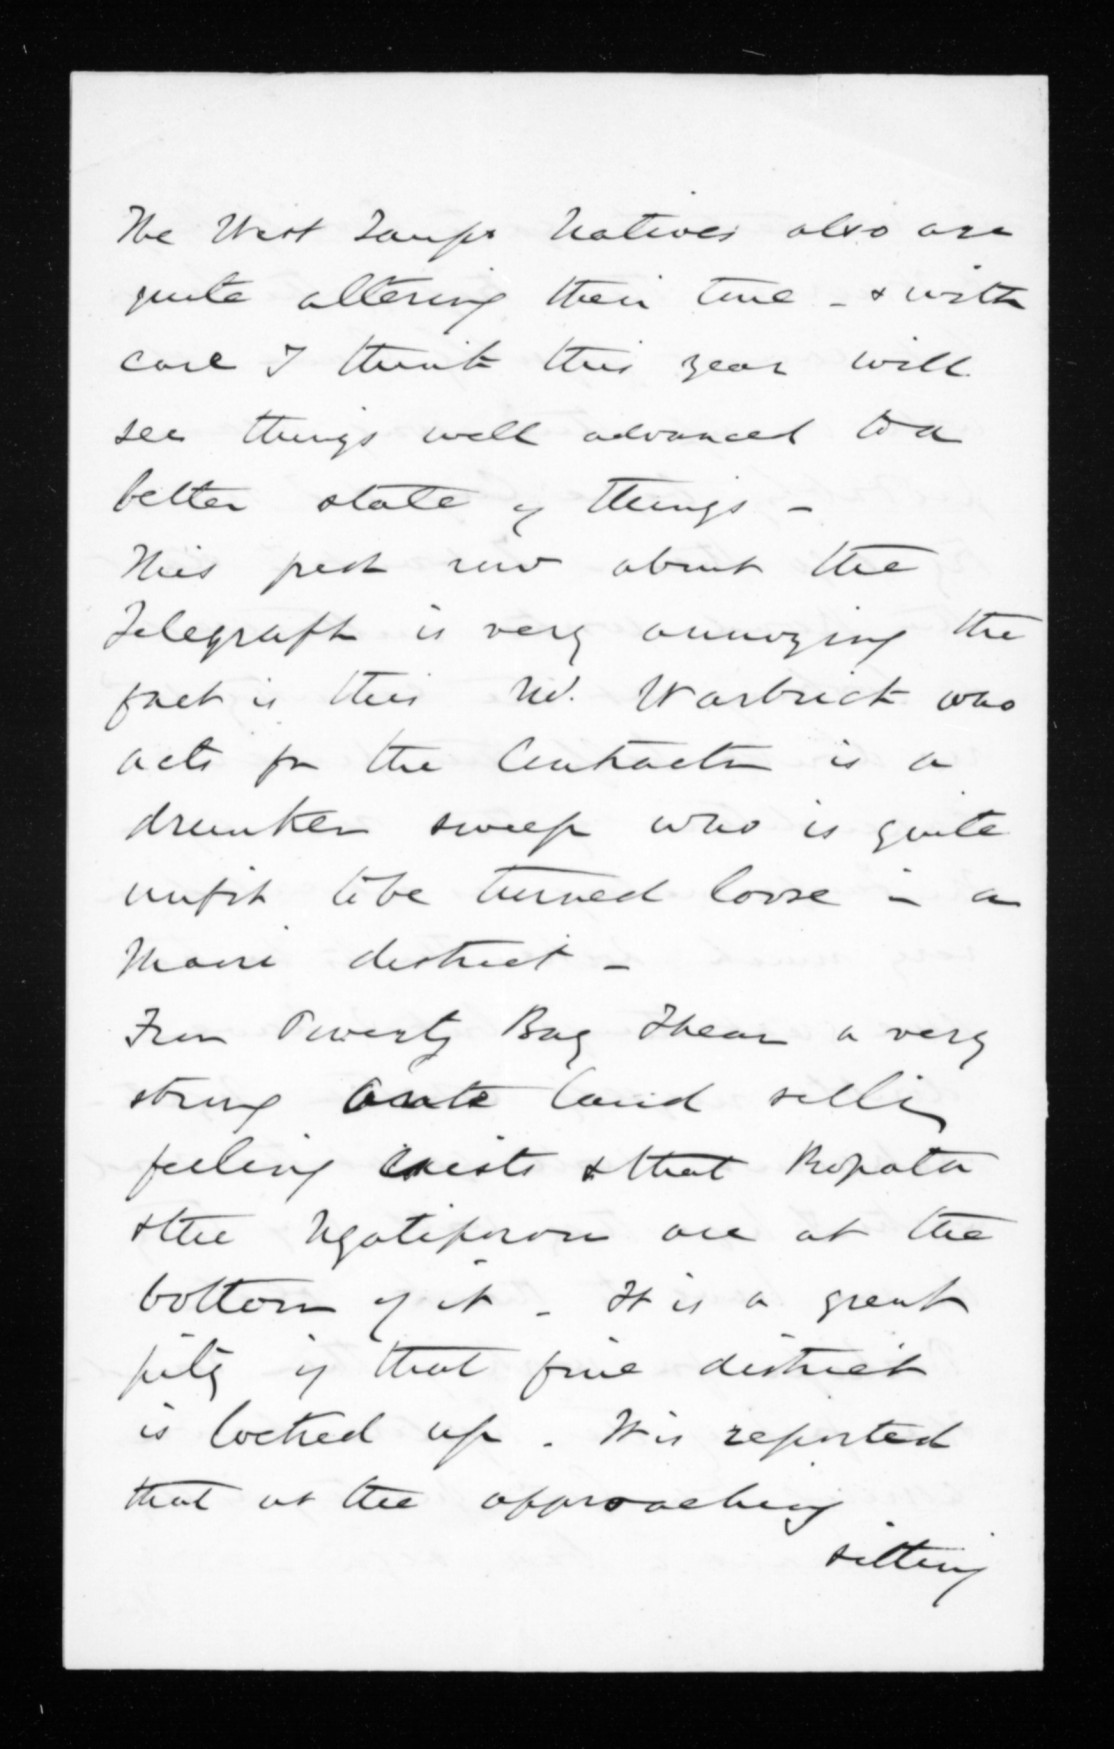 The West Taupo Natives also are
quite altering their tune - & with
care I think this year will
see things well advanced to a
better state of things -
This petty row about the
Telegraph is very annoying the
fact is this Mr. Warbrick who
acts for the Contractor is a
drunken sweep who is quite
unfit to be turned loose in a
Maori district -
From Poverty Bay I hear a very
strong ante land selling
feeling exists & that Ropata
& the Ngatiporou are at the
bottom of it - It is a great
pity if that fine district
is locked up. It is reported
that at the approaching
sitting